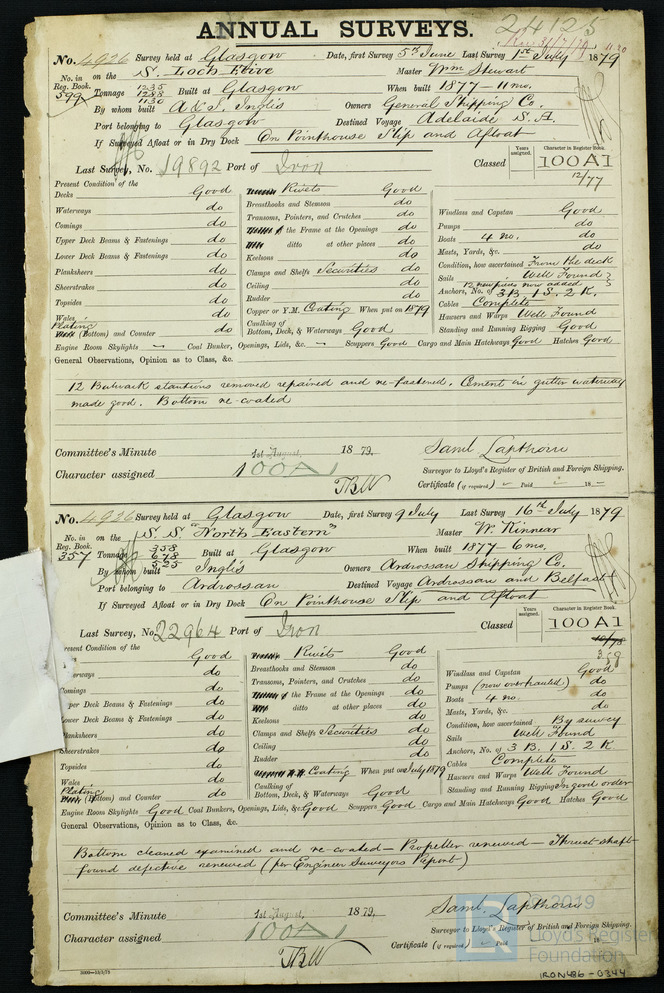 ANNUAL SURVEYS.
24125
No. 4926 Survey held at Glasgow Date, first Survey 5th June Last Survey 1st July 1879
No. in Reg. Book. 599 on the S. Loch Etive Master Wm Stewart
Tonnage 1235 1288 1130 Built at Glasgow When built 1877 - 11 mo.
By whom built A & J. Inglis Owners General Shipping Co.
Port belonging to Glasgow Destined Voyage Adelaide S. A.
If Surveyed Afloat or in Dry Dock On Pointhouse Slip and Afloat
Last Survey, No. 19892 Port of Iron Classed Years assigned. Character in Register Book. 100A1
12/77
Present Condition of the
Decks Good Rivets Good Windlass and Capstan Good
Waterways do Breasthooks and Stemson do Pumps do
Comings do Transoms, Pointers, and Crutches do Boats 4 no. do
Upper Deck Beams & Fastenings do the Frame at the Openings do Masts, Yards, &c. do
Lower Deck Beams & Fastenings do ditto at other places do Condition, how ascertained From the deck
Planksheers do Keelsons do Sails Well Found
Sheerstrakes do Clamps and Shelfs Securities do 12 new pieces now added
Topsides do Ceiling do Anchors, No. of 3 B. 1 S. 2 K.
Wales do Rudder do Cables Complete
Plating (Bottom) and Counter do Copper or Y.M. Coating When put on 1879 Hawsers and Warps Well Found
Caulking of Bottom, Deck, & Waterways Good Standing and Running Rigging Good
Engine Room Skylights - Coal Bunker, Openings, Lids, &c. - Scuppers Good Cargo and Main Hatchways Good Hatches Good
General Observations, Opinion as to Class, &c.
12 Bulwark stantions removed repaired and re-fastened. Cement in gutter waterway
made good. Bottom re-coated
Committee's Minute 1st August, 1879. Saml Lapthorn
Character assigned 100A1 Surveyor to Lloyd's Register of British and Foreign Shipping.
TBW Certificate (if required) Paid 18
No. 4926 Survey held at Glasgow Date, first Survey 9 July Last Survey 16th July 1879
No. in Reg. Book. 357 on the S. S. "North Eastern" Master W. Kinnear
Tonnage 358 678 525 Built at Glasgow When built 1877 - 6 mo.
By whom built Inglis Owners Ardrossan Shipping Co.
Port belonging to Ardrossan Destined Voyage Ardrossan and Belfast
If Surveyed Afloat or in Dry Dock On Pointhouse Slip and Afloat
Last Survey, No. 22964 Port of Iron Classed Years assigned. Character in Register Book. 100A1
10/78
Present Condition of the
Good Rivets Good Windlass and Capstan Good
do Breasthooks and Stemson do Pumps (now overhauled) do
Comings do Transoms, Pointers, and Crutches do Boats 4 no. do
Deck Beams & Fastenings do the Frame at the Openings do Masts, Yards, &c. do
Lower Deck Beams & Fastenings do ditto at other places do Condition, how ascertained By survey
Planksheers do Keelsons do Sails Well Found
Sheerstrakes do Clamps and Shelfs Securities do Anchors, No. of 3 B. 1 S. 2 K.
Topsides do Ceiling do Cables Complete
Wales do Rudder do Hawsers and Warps Well Found
Plating (Bottom) and Counter do Coating When put on July 1879 Standing and Running Rigging In good order
Caulking of Bottom, Deck, & Waterways Good
Engine Room Skylights Good Coal Bunkers, Openings, Lids, &c. Good Scuppers Good Cargo and Main Hatchways Good Hatches Good
General Observations, Opinion as to Class, &c.
Bottom cleaned examined and re-coated - Propeller renewed - Thrust shaft
found defective renewed (per Engineer Surveyors Report)
Committee's Minute 1st August, 1879. Saml. Lapthorn
Character assigned 100A1 Surveyor to Lloyd's Register of British and Foreign Shipping.
TBW Certificate (if required) Paid 18
© 2019
Lloyd's Register
Foundation
IRON486-0344